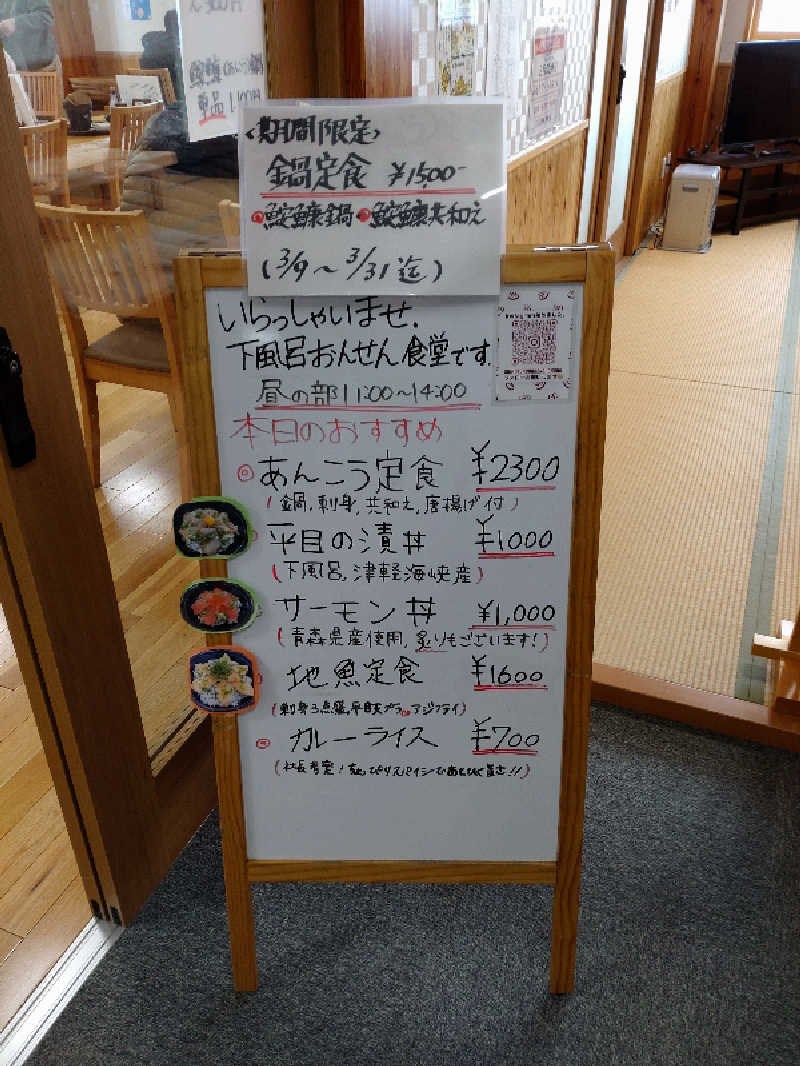 <期間限定>
鍋定食 ¥1500-
鮟鱇鍋・鮟鱇共和え
(3/9～3/31迄)
いらっしゃいませ.
下風呂おんせん食堂です.
昼の部11:00～14:00
本日のおすすめ
あんこう定食 ¥2300
(鍋,刺身,共和え,唐揚げ付)
平目の漬丼 ¥1000
(下風呂,津軽海峡産)
サーモン丼 ¥1,000
(青森県産使用,炙りもございます!)
地魚定食 ¥1600
(刺身3点盛,平目天プラ,アジフライ)
カレーライス ¥700